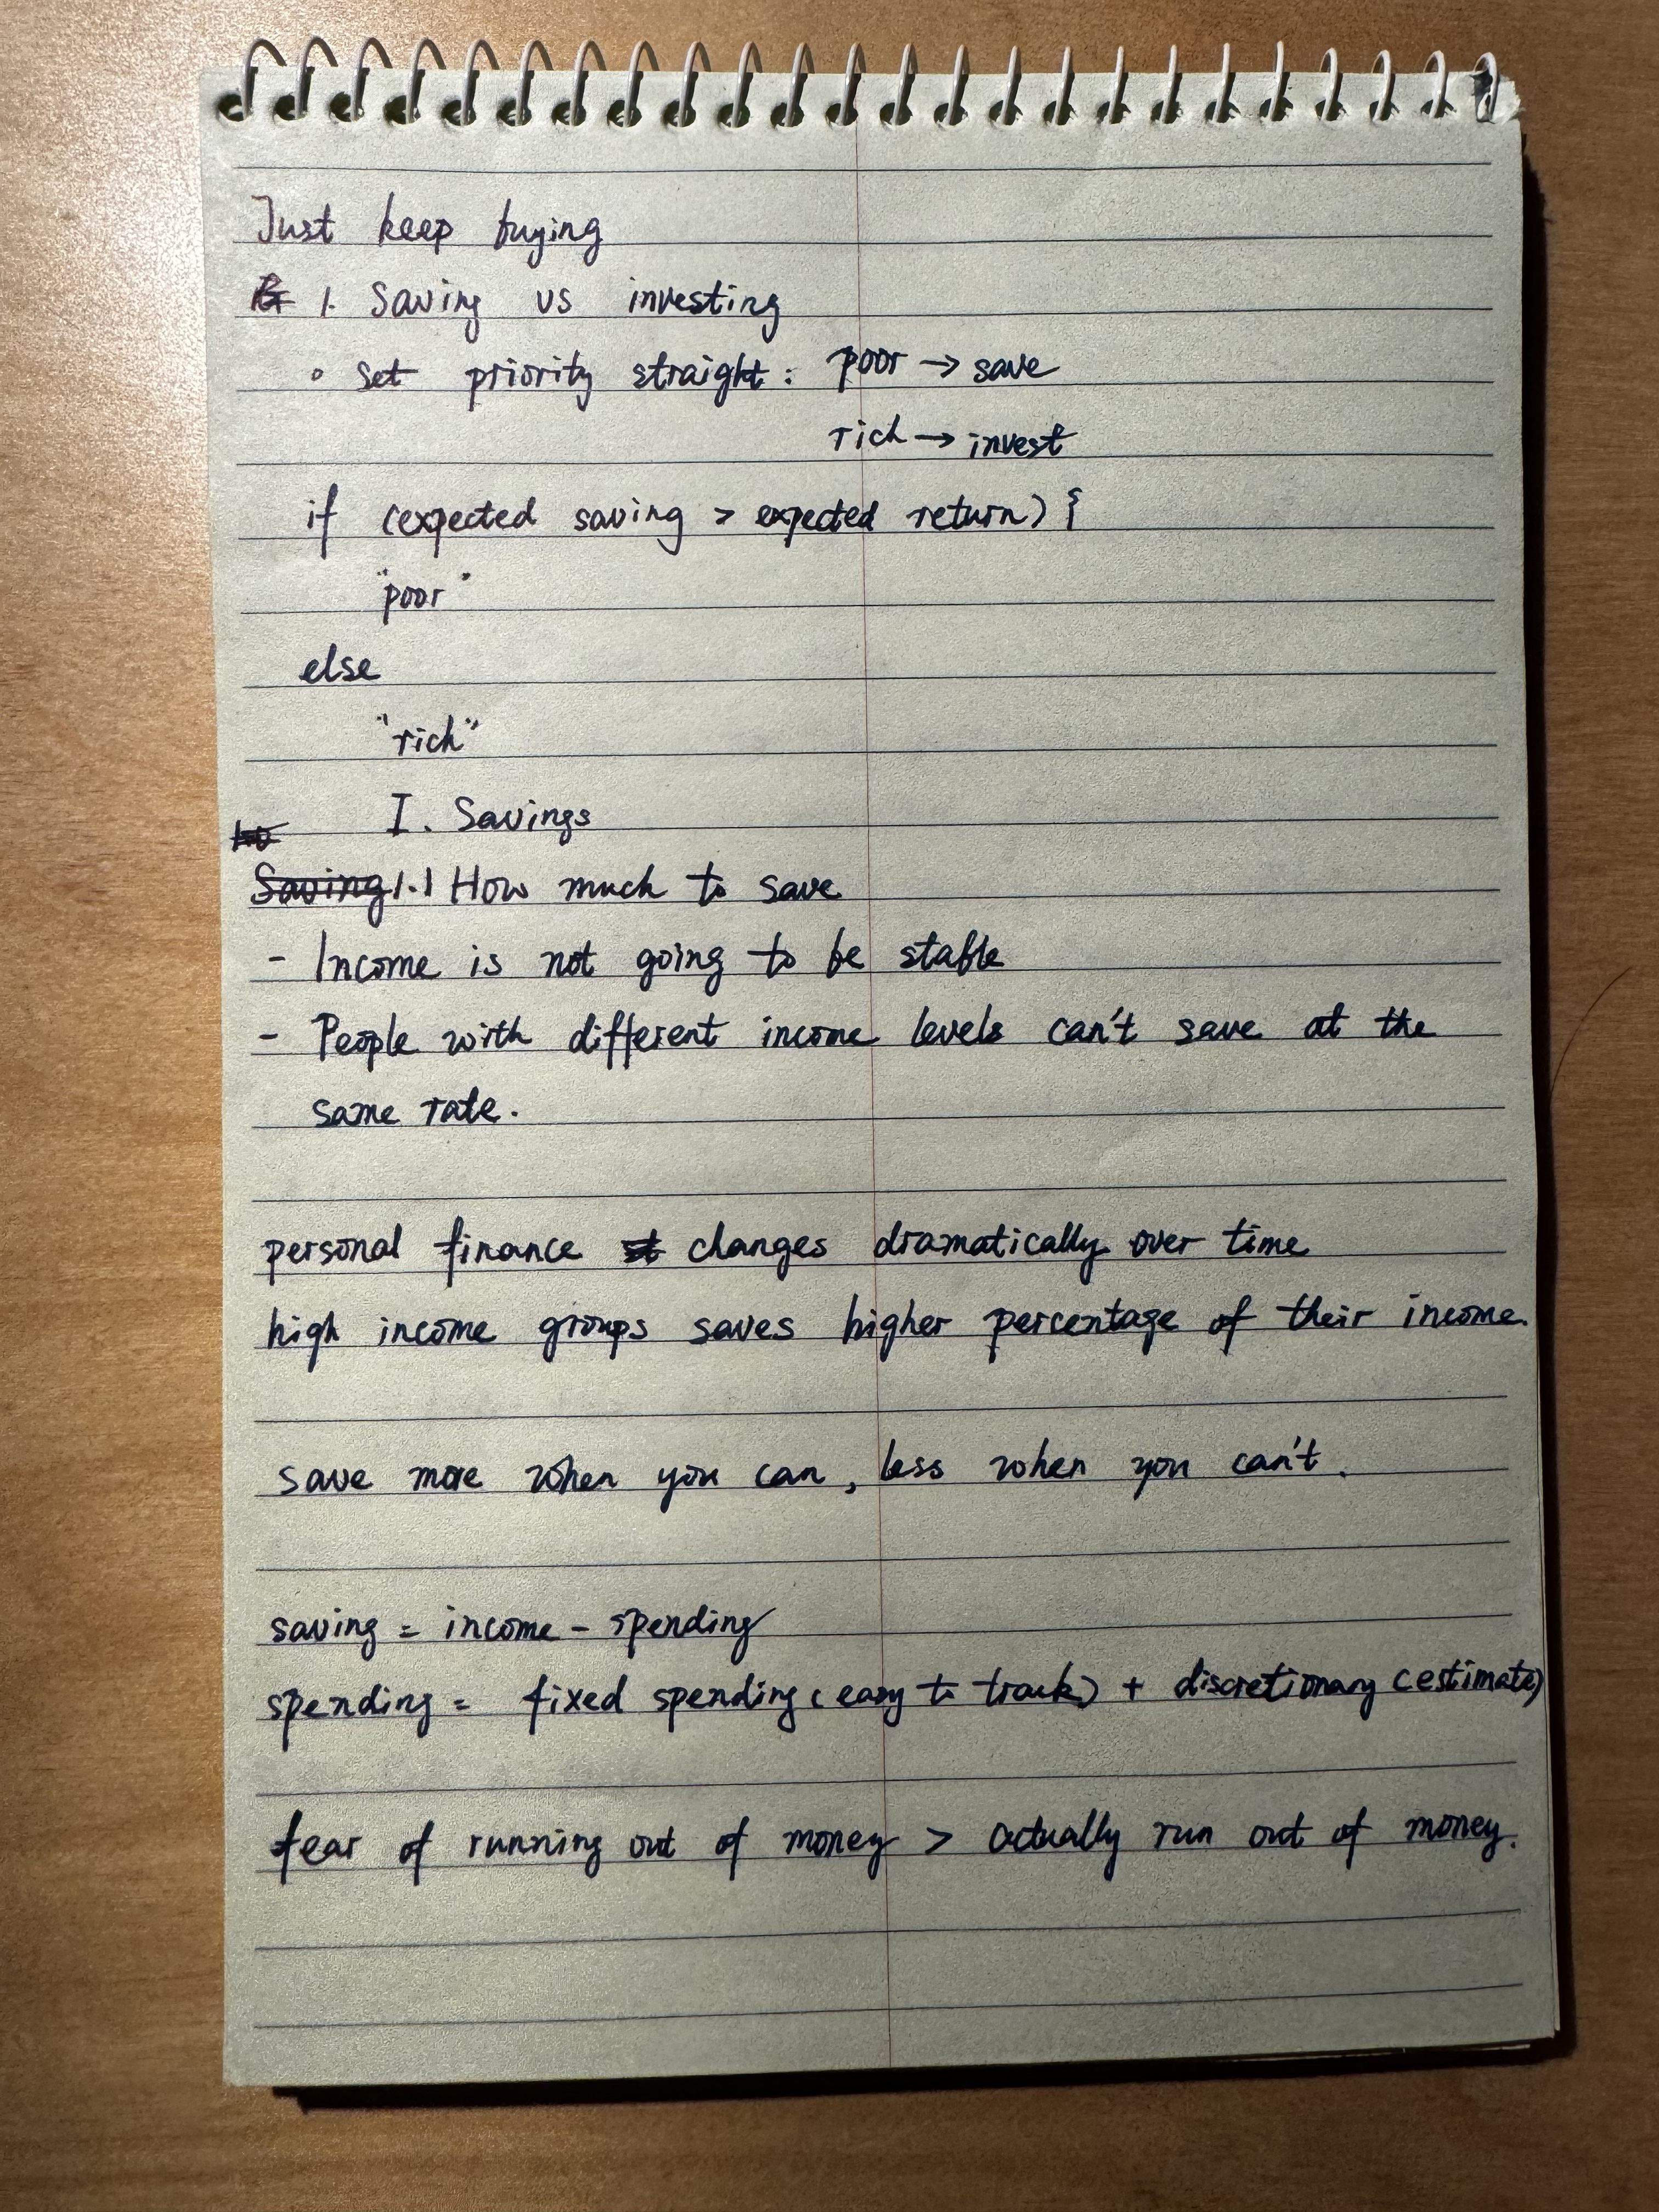 Just keep buying
1. Saving vs investing
◦ set priority straight: poor → save
rich → invest
if (expected saving > expected return) {
"poor"
else
"rich"
I. Savings
Saving 1.1 How much to save
- Income is not going to be stable
- People with different income levels can't save at the
same rate.
personal finance changes dramatically over time
high income groups saves higher percentage of their income.
save more when you can, less when you can't.
saving = income - spending
spending = fixed spending (easy to track) + discretionary (estimate)
fear of running out of money > actually run out of money.